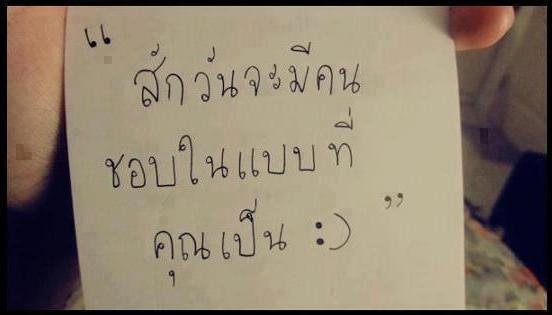 “
สักวันจะมีคน
ชอบในแบบที่
คุณเป็น :) ”